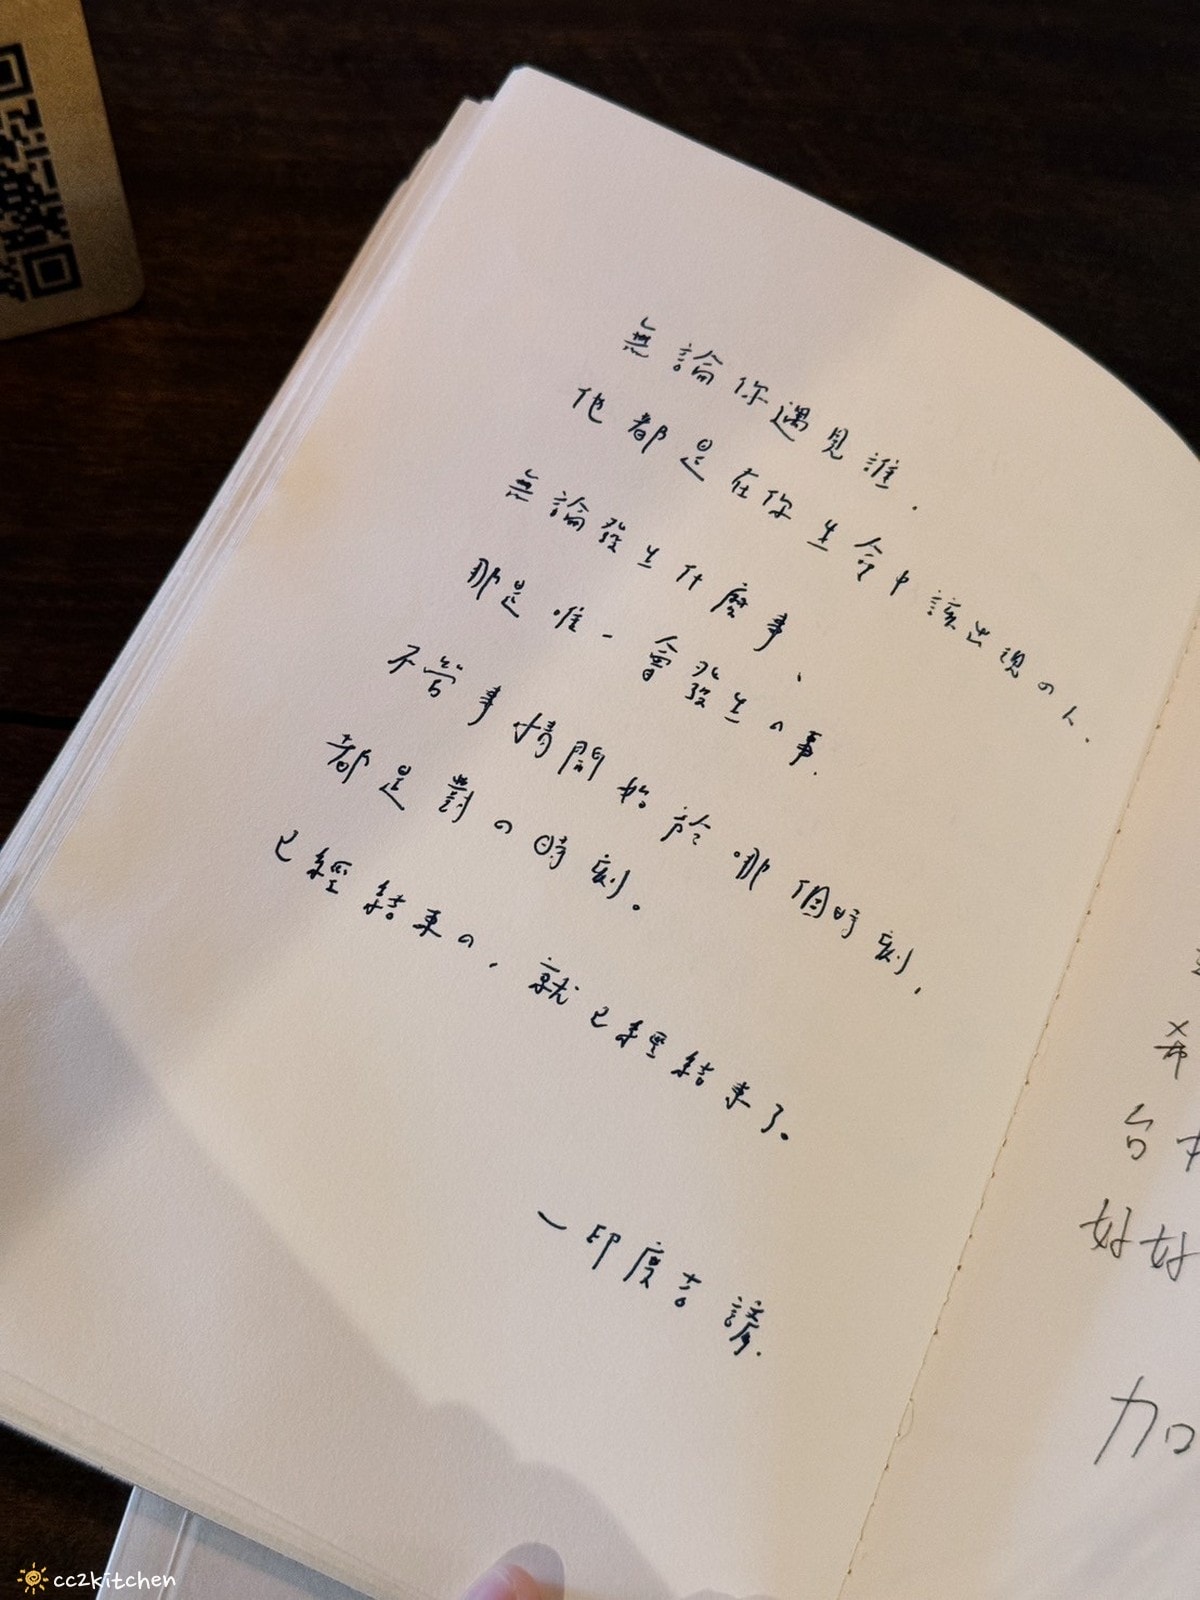 無論你遇見誰.
他都是在你生命中該出現の人.
無論發生什麼事、
那是唯一會發生の事.
不管事情開始於哪個時刻,
都是對の時刻。
已經結束の,就已經結束了。
—印度古諺.
希
台中
好好
加
cc2kitchen